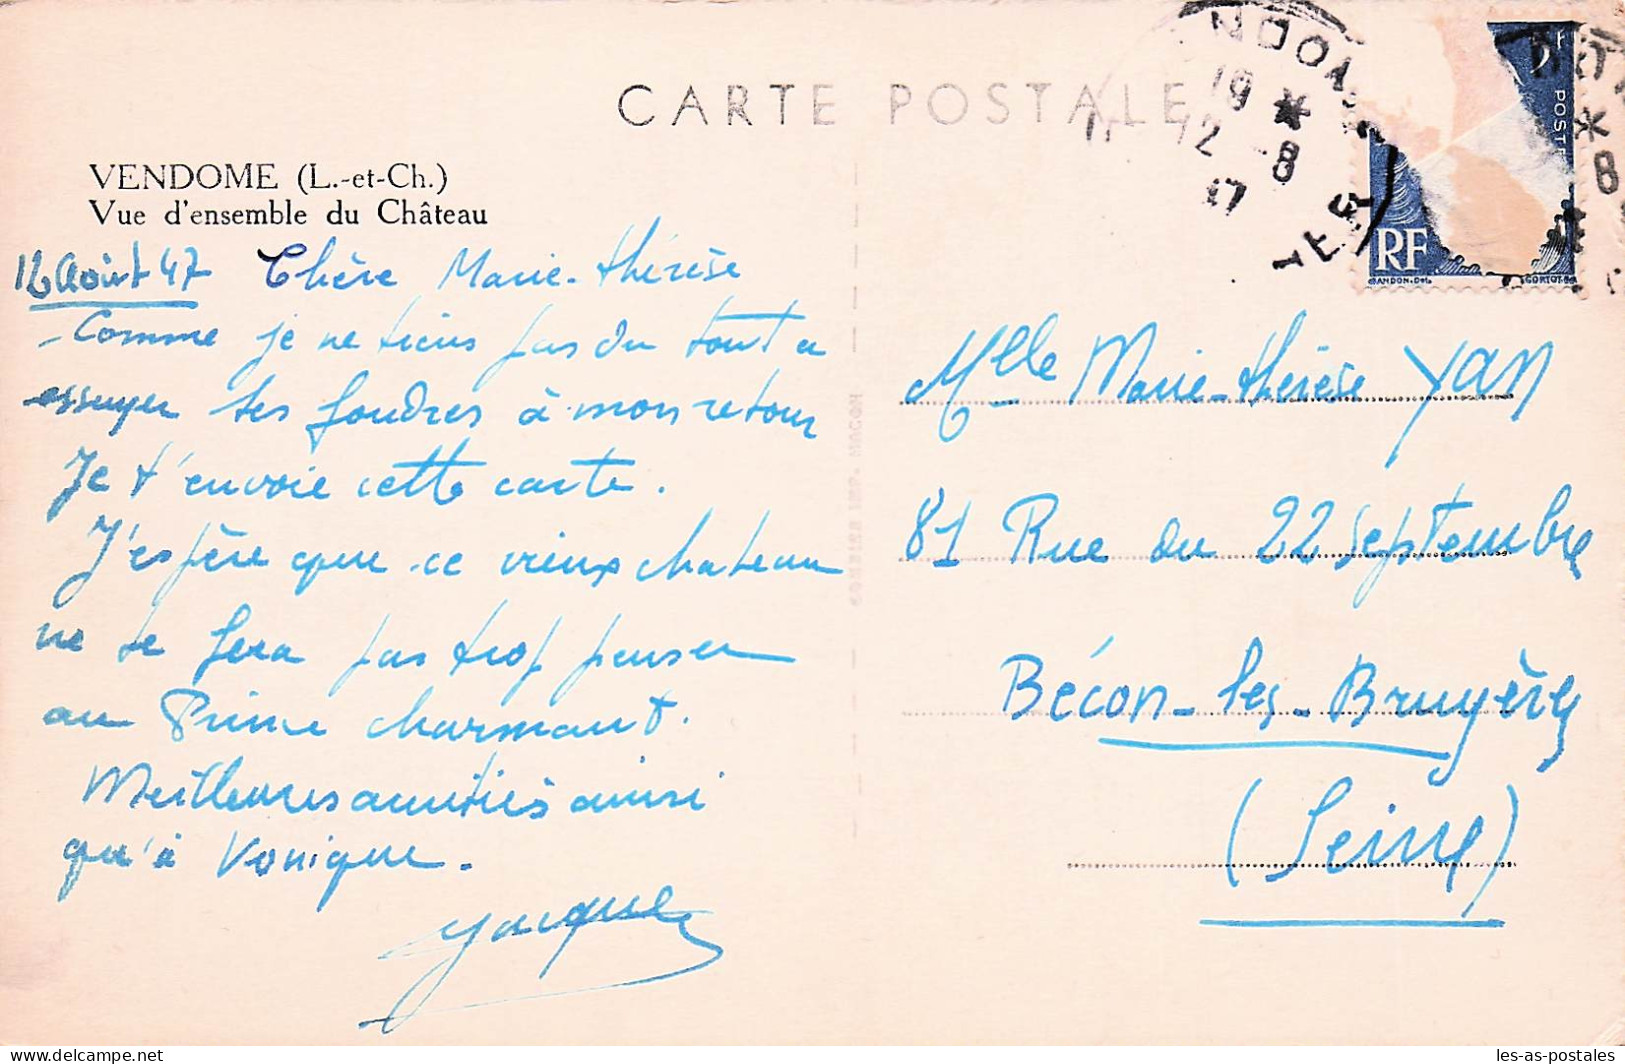 CARTE POSTALE
VENDOME (L.-et-Ch.)
Vue d'ensemble du Château
12 Août 47 Chère Marie-thérèse
- Comme je ne tiens pas du tout a
essuyer tes foudres à mon retour
Je t'envoie cette carte.
J'espère que ce vieux chateau
ne te fera pas trop penser
au Prince charmant.
Meilleures amitiés ainsi
qu'à Vonique.
Jacques
19 *
12 -8
47
RF
POSTES
GORTOT
Mlle Marie-thérèse YAN
81 Rue du 22 Septembre
Bécon-les-Bruyères
(Seine)
les-as-postales